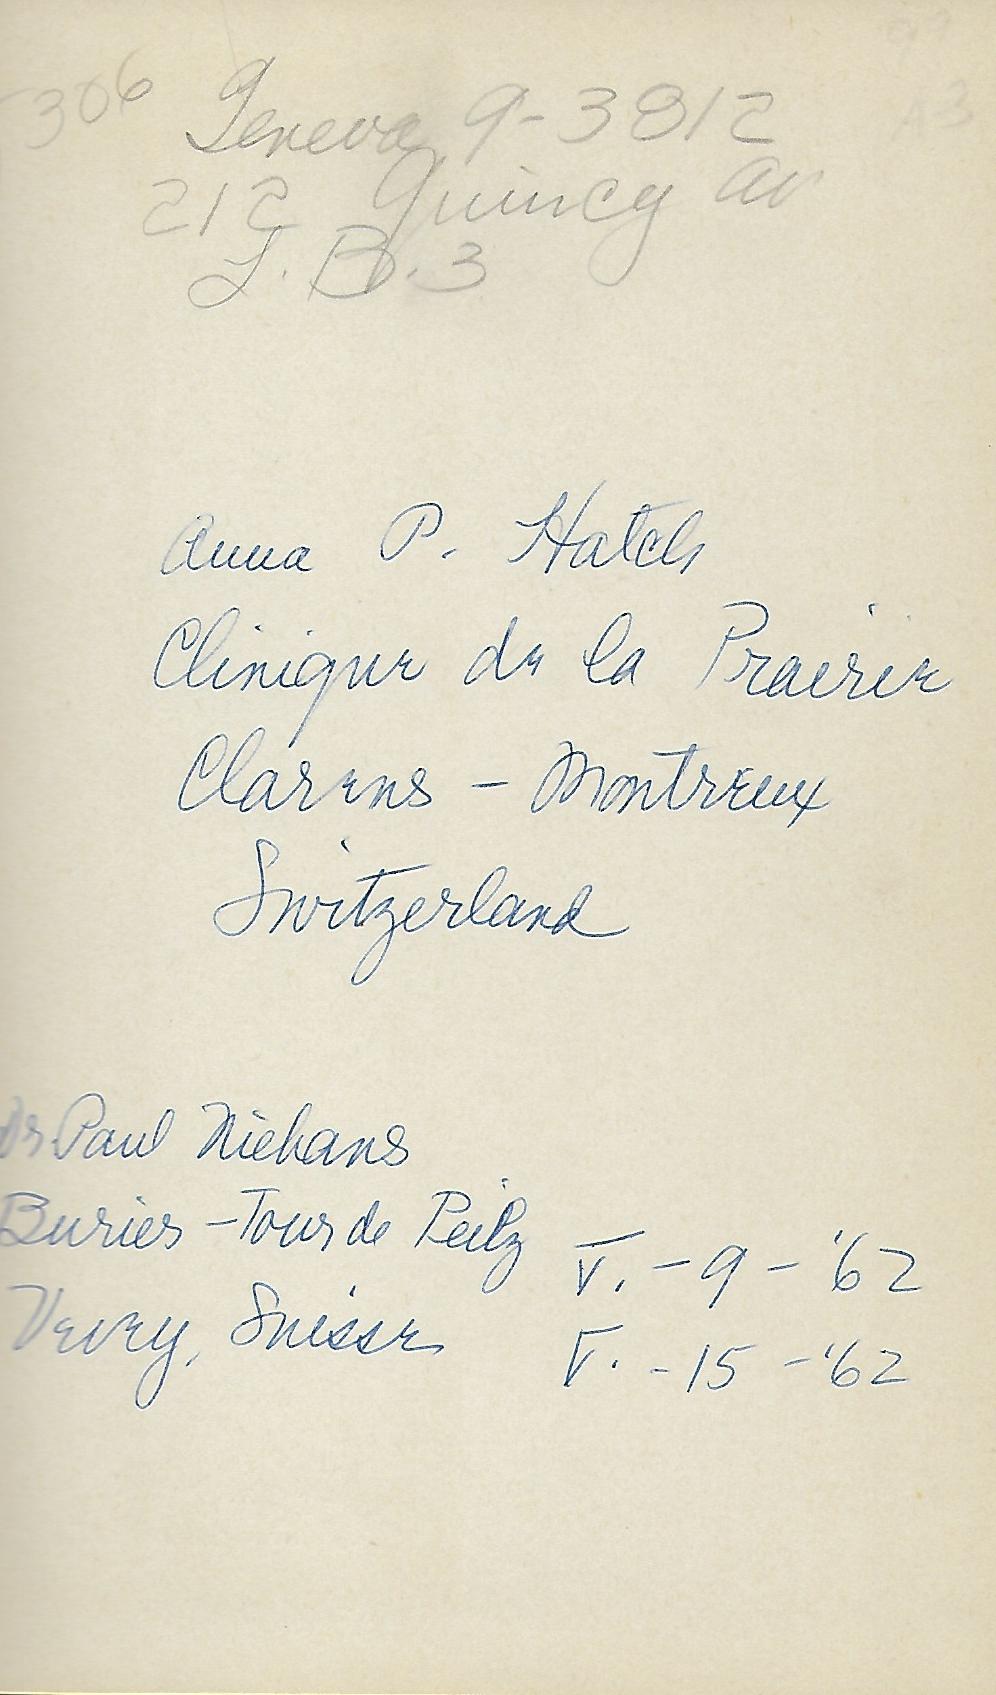 306
Geneva 9-3812
212 Quincy Av
L.B.3
Anna P. Hatch
Clinique de la Prairie
Clarens - Montreux
Switzerland
Dr Paul Niehans
Buries - Tour de Peilz
V. - 9 - '62
Vevey, Suisse
V. - 15 - '62